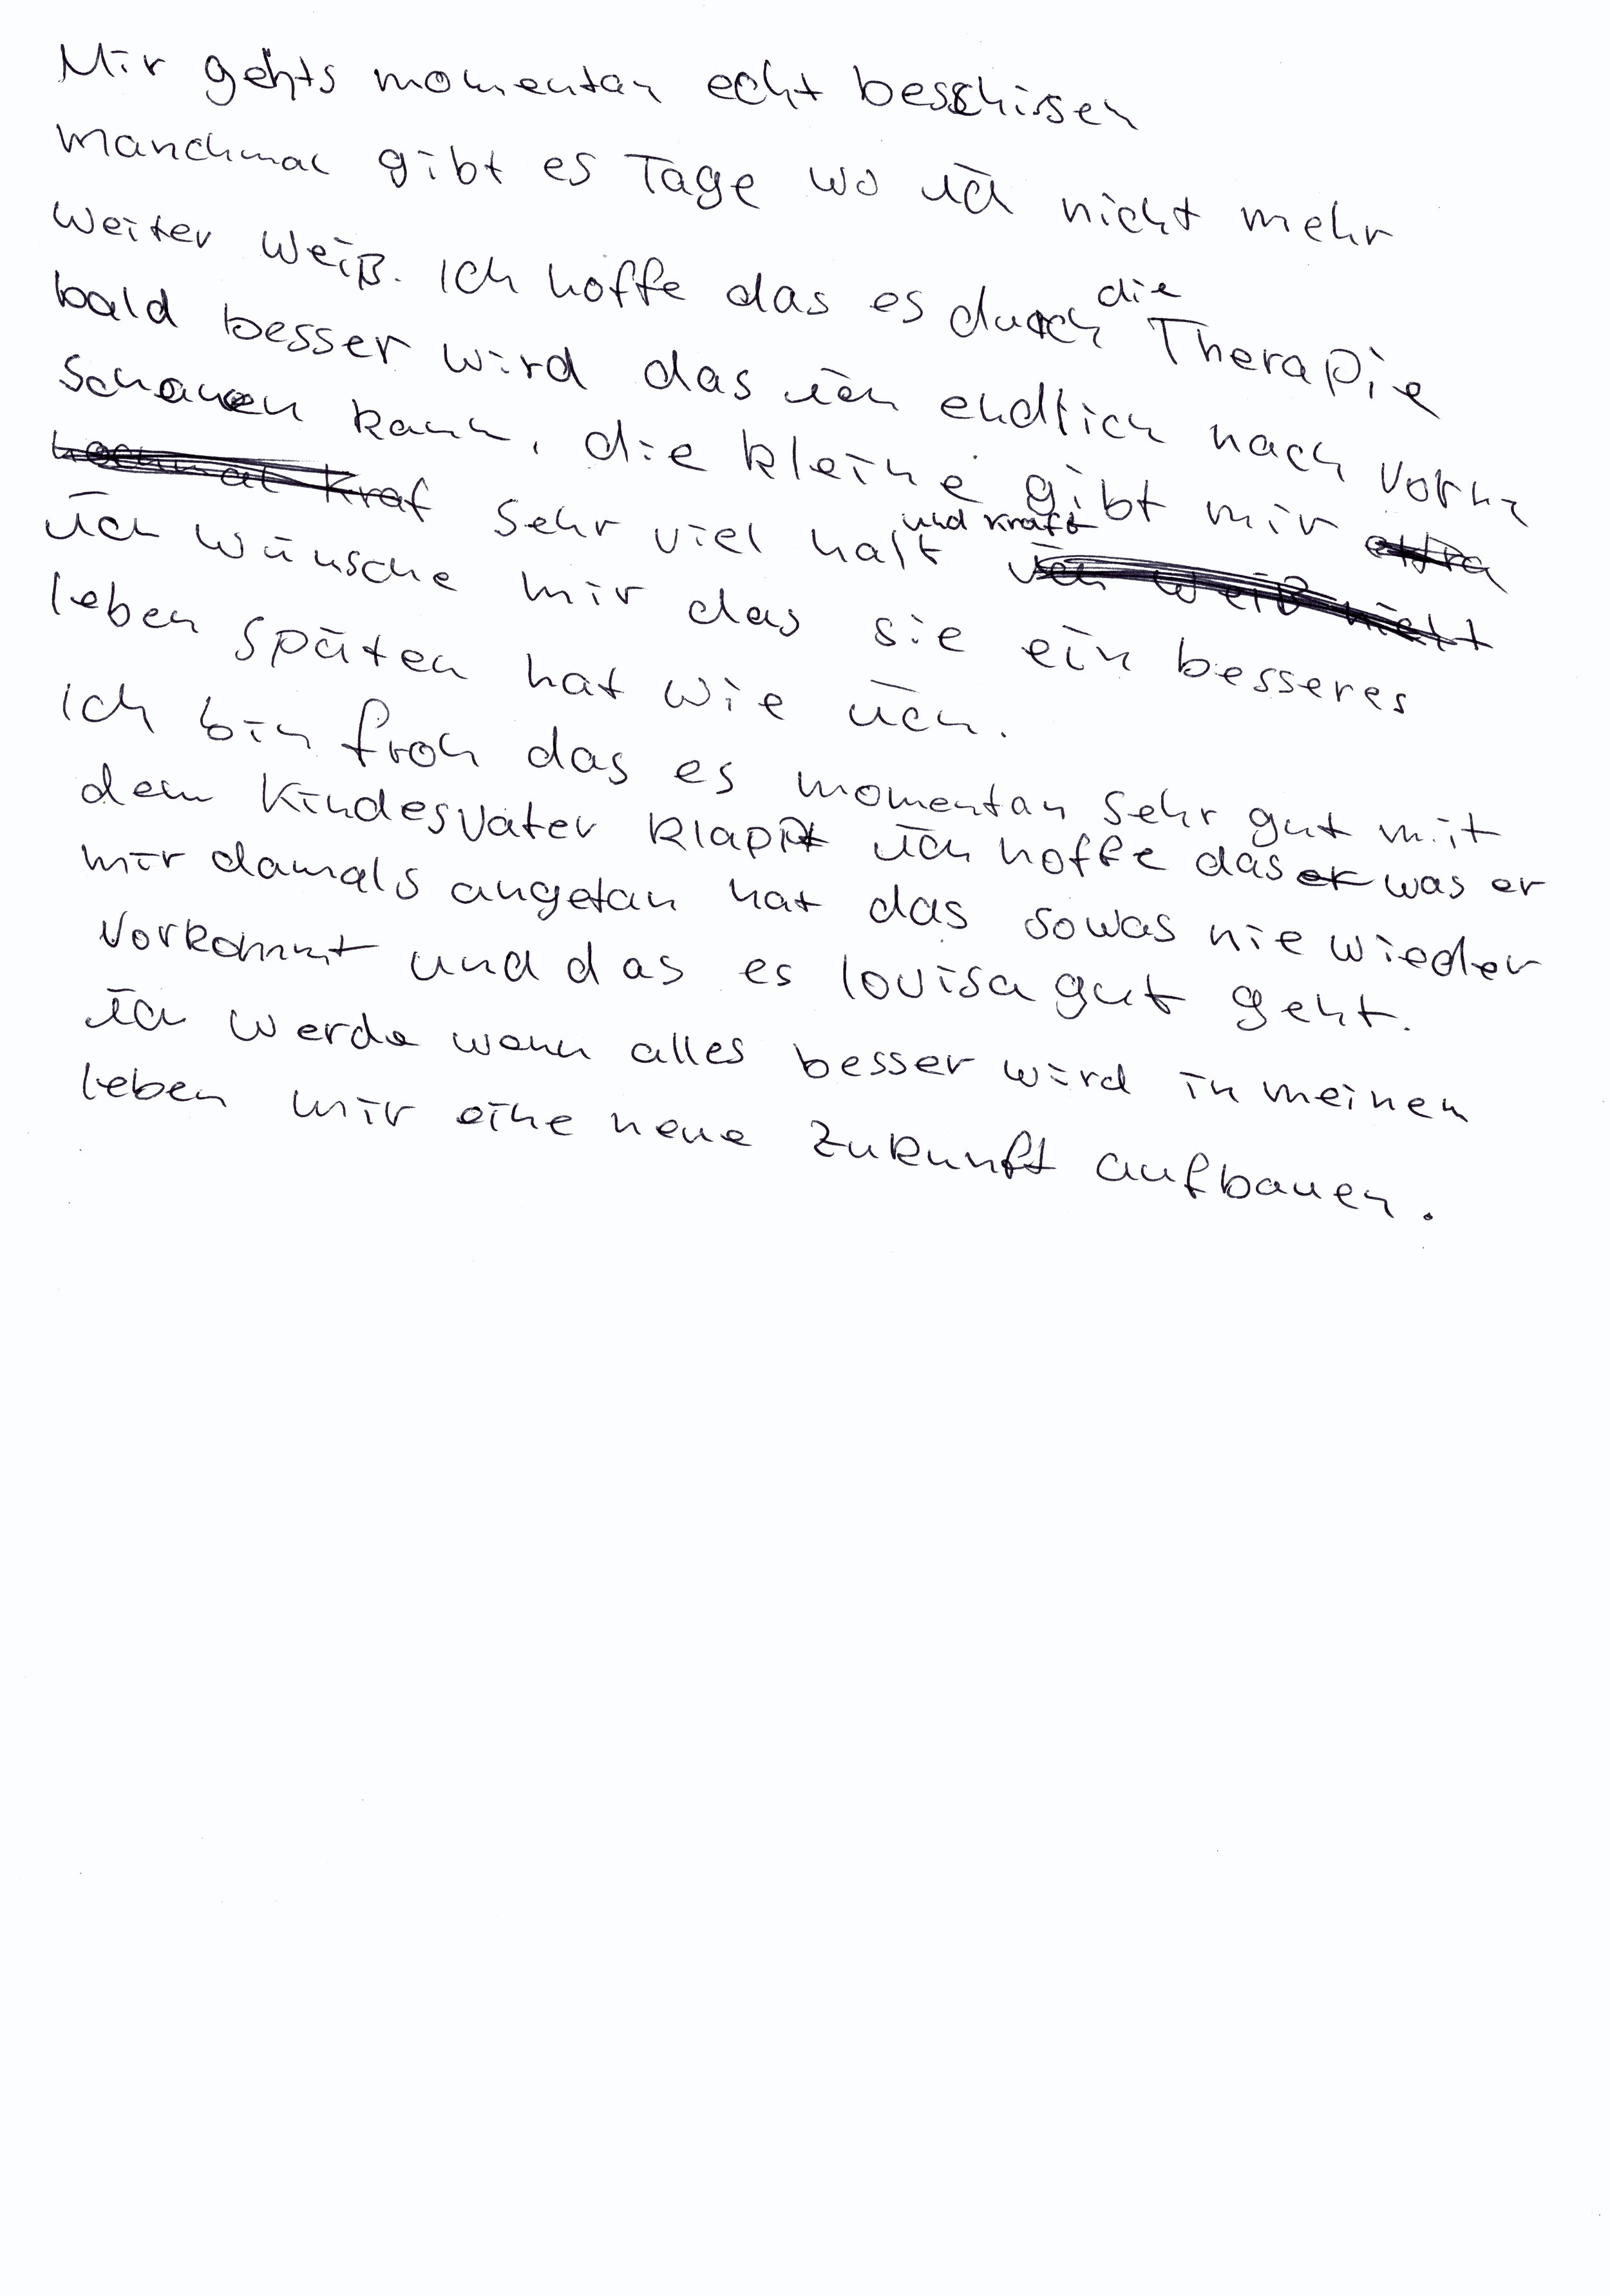 Mir gehts momentan echt beschissen
manchmal gibt es Tage wo ich nicht mehr
weiter weiß. Ich hoffe das es durch die Therapie
bald besser wird das ich endlich nach vorne
schauen kann, die kleine gibt mir
sehr viel halt und kraft ich weiß nicht
ich wünsche mir das sie ein besseres
leben späten hat wie ich.
ich bin froh das es momentan sehr gut mit
dem Kindesvater klappt ich hoffe das er was er
mir damals angetan hat das sowas nie wieder
vorkommt und das es lovisa gut geht.
ich werde wenn alles besser wird in meinen
leben mir eine neue Zukunft aufbauen.